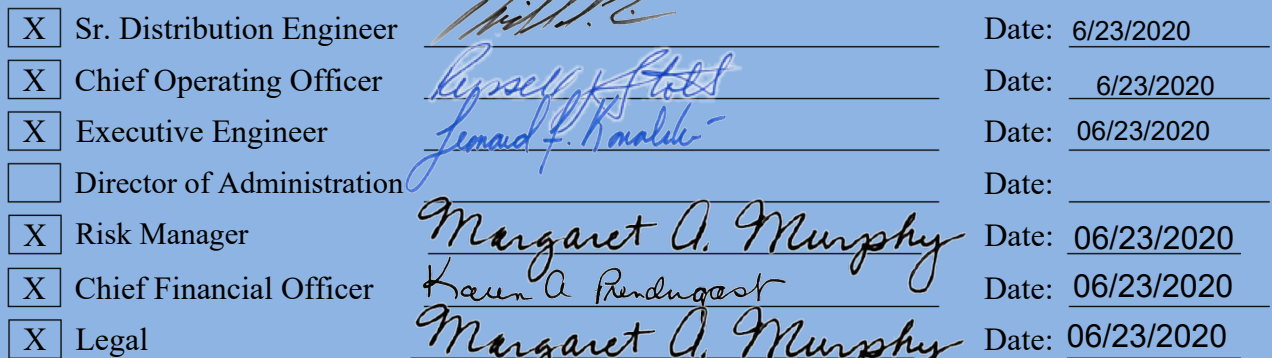 X Sr. Distribution Engineer Date: 6/23/2020
X Chief Operating Officer Russell Stolt Date: 6/23/2020
X Executive Engineer Lenard F. Date: 06/23/2020
Director of Administration Date:
X Risk Manager Margaret A. Murphy Date: 06/23/2020
X Chief Financial Officer Karen A Prendergast Date: 06/23/2020
X Legal Margaret A. Murphy Date: 06/23/2020